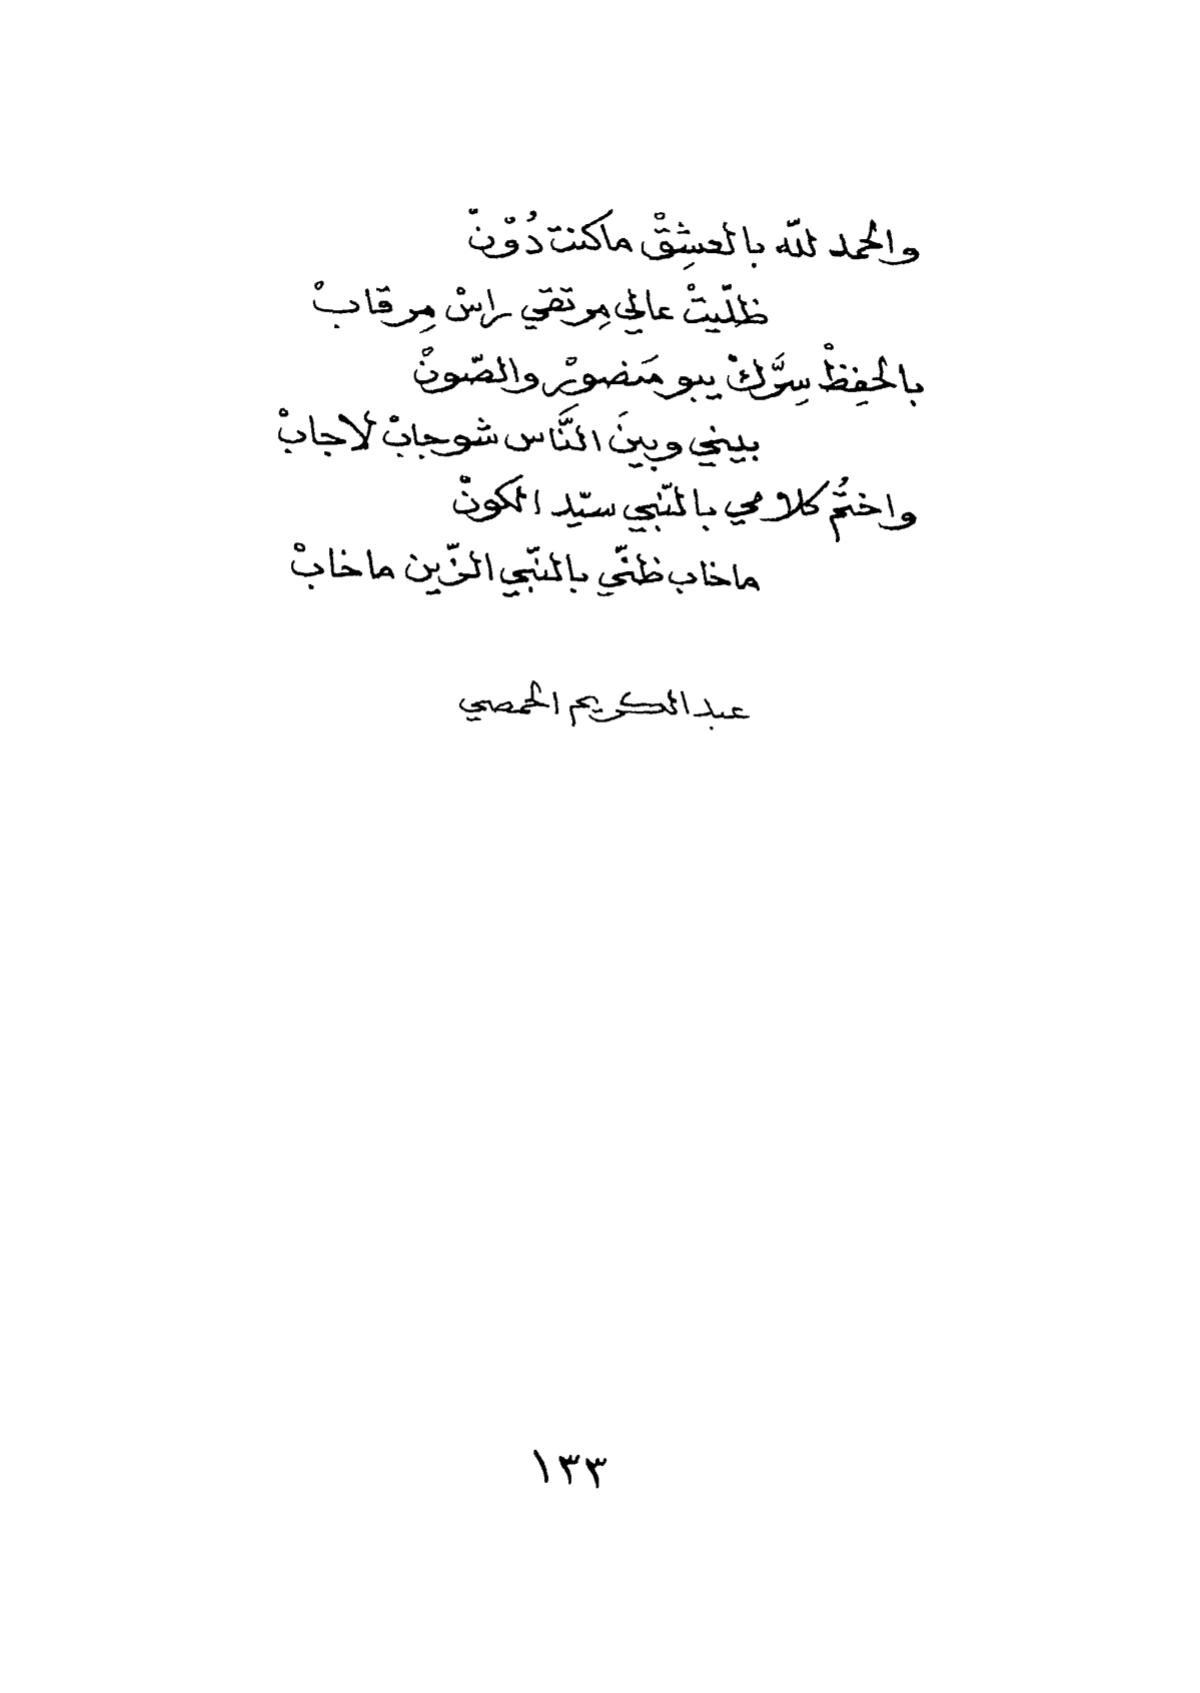 والحمد للّه بالعشِقْ ماكنت دُوْنْ
ظلّيتْ عالي مِرتقي راسْ مِرقابْ
بالحفِظْ سِرَّكْ يبو مَنصورْ والصّونْ
بيني وبينَ النَّاس شوجابْ لاجابْ
واختُم كلامي بالنّبي سيّد الكونْ
ماخاب ظنّي بالنّبي الزّين ماخابْ
عبدالكريم الحمصي
١٣٣